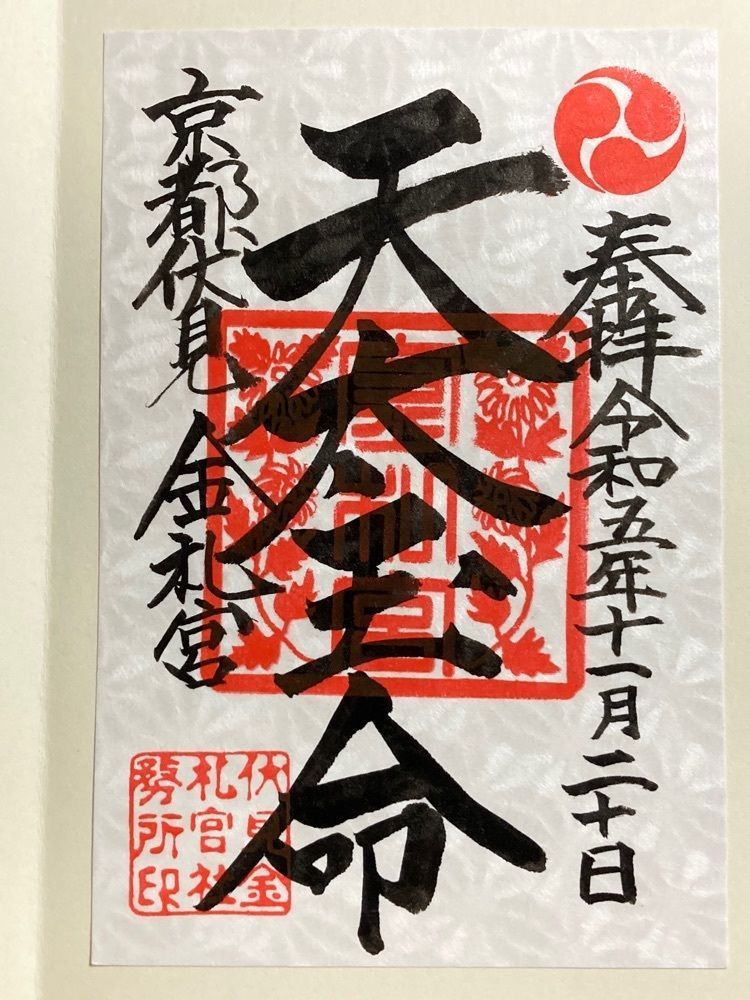 奉拝 令和五年十一月二十日
天太玉命
京都伏見 金札宮
金札宮
伏見金
札宮社
務所印